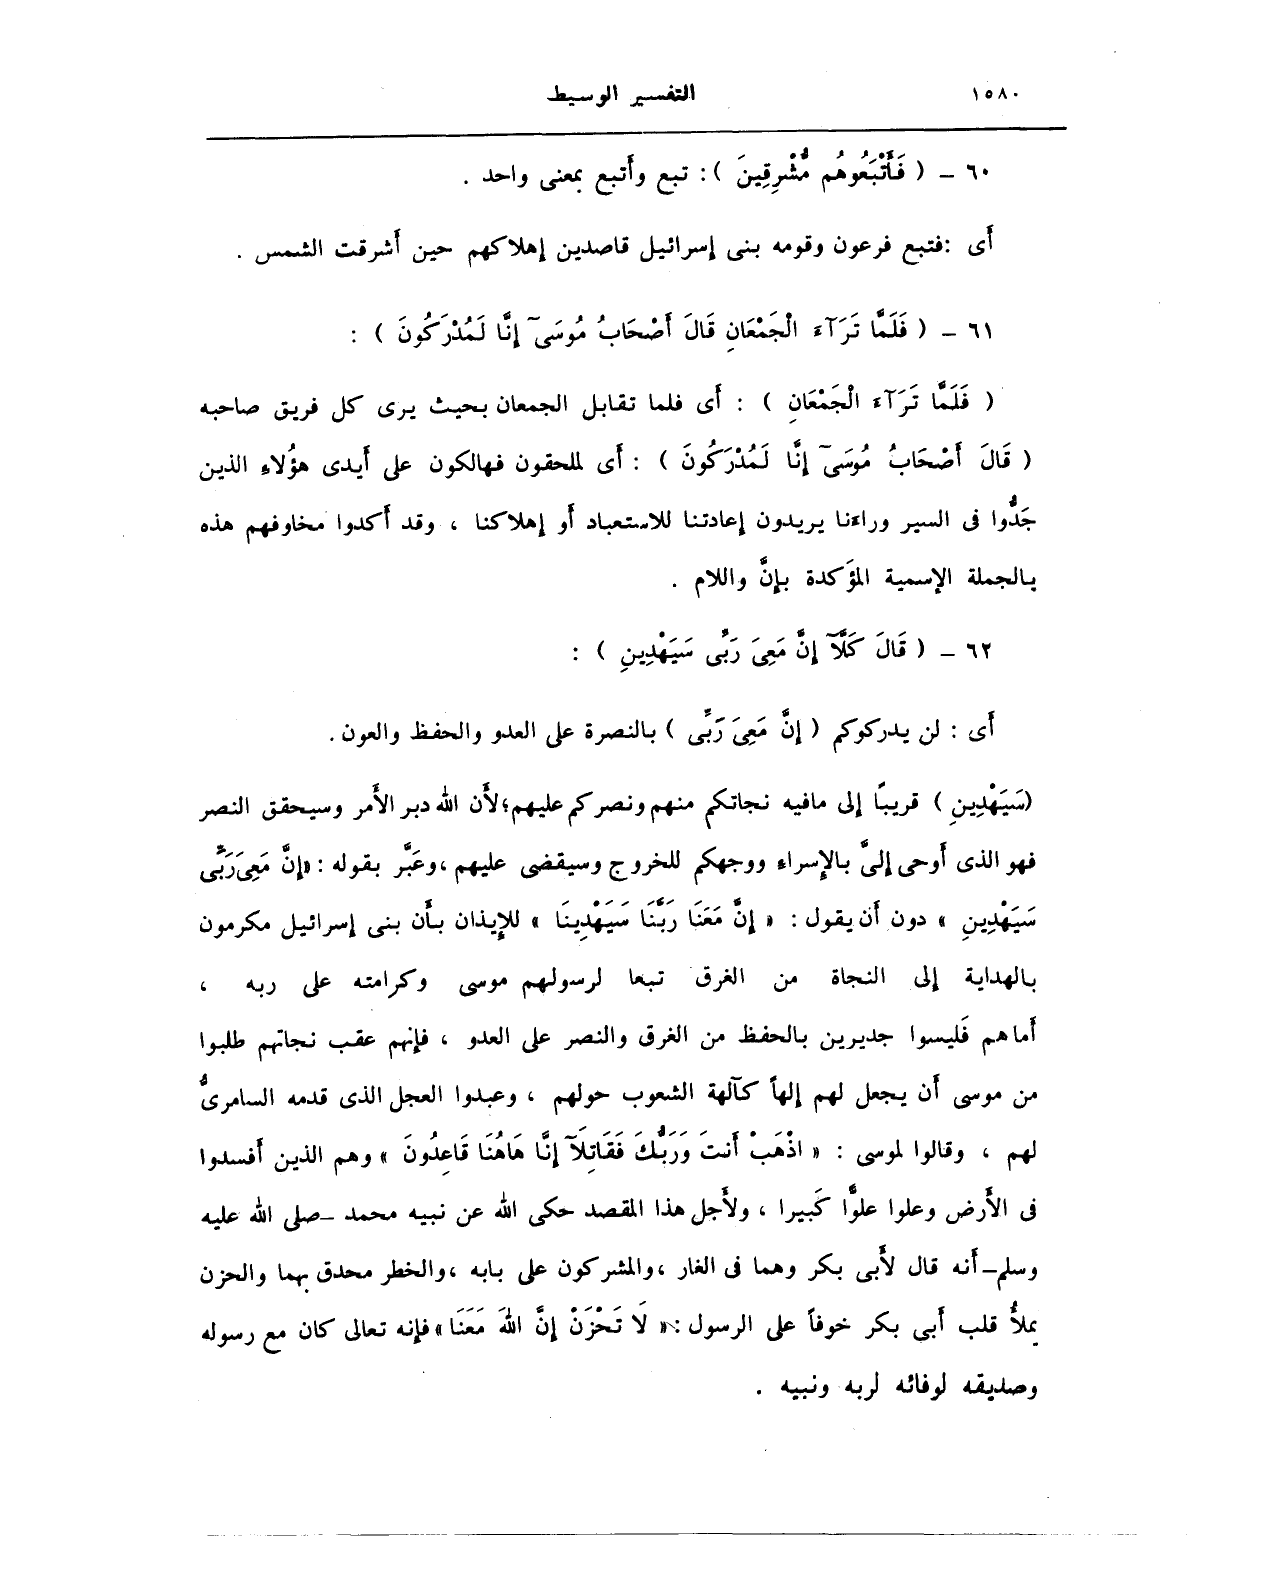 ١٥٨٠ التفسير الوسيط
٦٠ – ( فَأَتْبَعُوهُم مُّشْرِقِينَ ) : تبع وأَتبع بمعنى واحد .
أَى : فتبع فرعون وقومه بنى إسرائيل قاصدين إهلاكهم حين أَشرقت الشمس .
٦١ – ( فَلَمَّا تَرَآءَ الْجَمْعَانِ قَالَ أَصْحَابُ مُوسَىٓ إِنَّا لَمُدْرَكُونَ ) :
( فَلَمَّا تَرَآءَ الْجَمْعَانِ ) : أَى فلما تقابل الجمعان بحيث يرى كل فريق صاحبه
( قَالَ أَصْحَابُ مُوسَىٓ إِنَّا لَمُدْرَكُونَ ) : أَى لملحقون فهالكون على أَيدى هؤُلاءِ الذين
جَدُّوا فى السير وراءنا يريدون إعادتنا للاستعباد أَو إهلاكنا ، وقد أَكدوا مخاوفهم هذه
بالجملة الإسمية المؤَكدة بإنَّ واللام .
٦٢ – ( قَالَ كَلَّآ إِنَّ مَعِىَ رَبِّى سَيَهْدِينِ ) :
أَى : لن يدركوكم ( إِنَّ مَعِىَ رَبِّى ) بالنصرة على العدو والحفظ والعون .
(سَيَهْدِينِ ) قريبًا إلى مافيه نجاتكم منهم ونصركم عليهم؛لأَن الله دبر الأَمر وسيحقق النصر
فهو الذى أَوحى إلىَّ بالإِسراءِ ووجهكم للخروج وسيقضى عليهم ،وعَبَّر بقوله : «إِنَّ مَعِىَ رَبِّى
سَيَهْدِينِ » دون أَن يقول : « إِنَّ مَعَنَا رَبَّنَا سَيَهْدِينَا » للإِيذان بأَن بنى إسرائيل مكرمون
بالهداية إلى النجاة من الغرق تبعا لرسولهم موسى وكرامته على ربه ،
أَماهم فَليسوا جديرين بالحفظ من الغرق والنصر على العدو ، فإنهم عقب نجاتهم طلبوا
من موسى أَن يجعل لهم إلهاً كآلهة الشعوب حولهم ، وعبدوا العجل الذى قدمه السامرىُّ
لهم ، وقالوا لموسى : « اذْهَبْ أَنتَ وَرَبُّكَ فَقَاتِلَآ إِنَّا هَاهُنَا قَاعِدُونَ » وهم الذين أَفسدوا
فى الأَرض وعلوا علوًّا كَبيرا ، ولأَجل هذا المقصد حكى الله عن نبيه محمد –صلى الله عليه
وسلم–أَنه قال لأَبى بكر وهما فى الغار ،والمشركون على بابه ،والخطر محدق بهما والحزن
يملأُ قلب أَبى بكر خوفاً على الرسول :« لَا تَحْزَنْ إِنَّ اللهَ مَعَنَا»فإنه تعالى كان مع رسوله
وصديقه لوفائه لربه ونبيه .